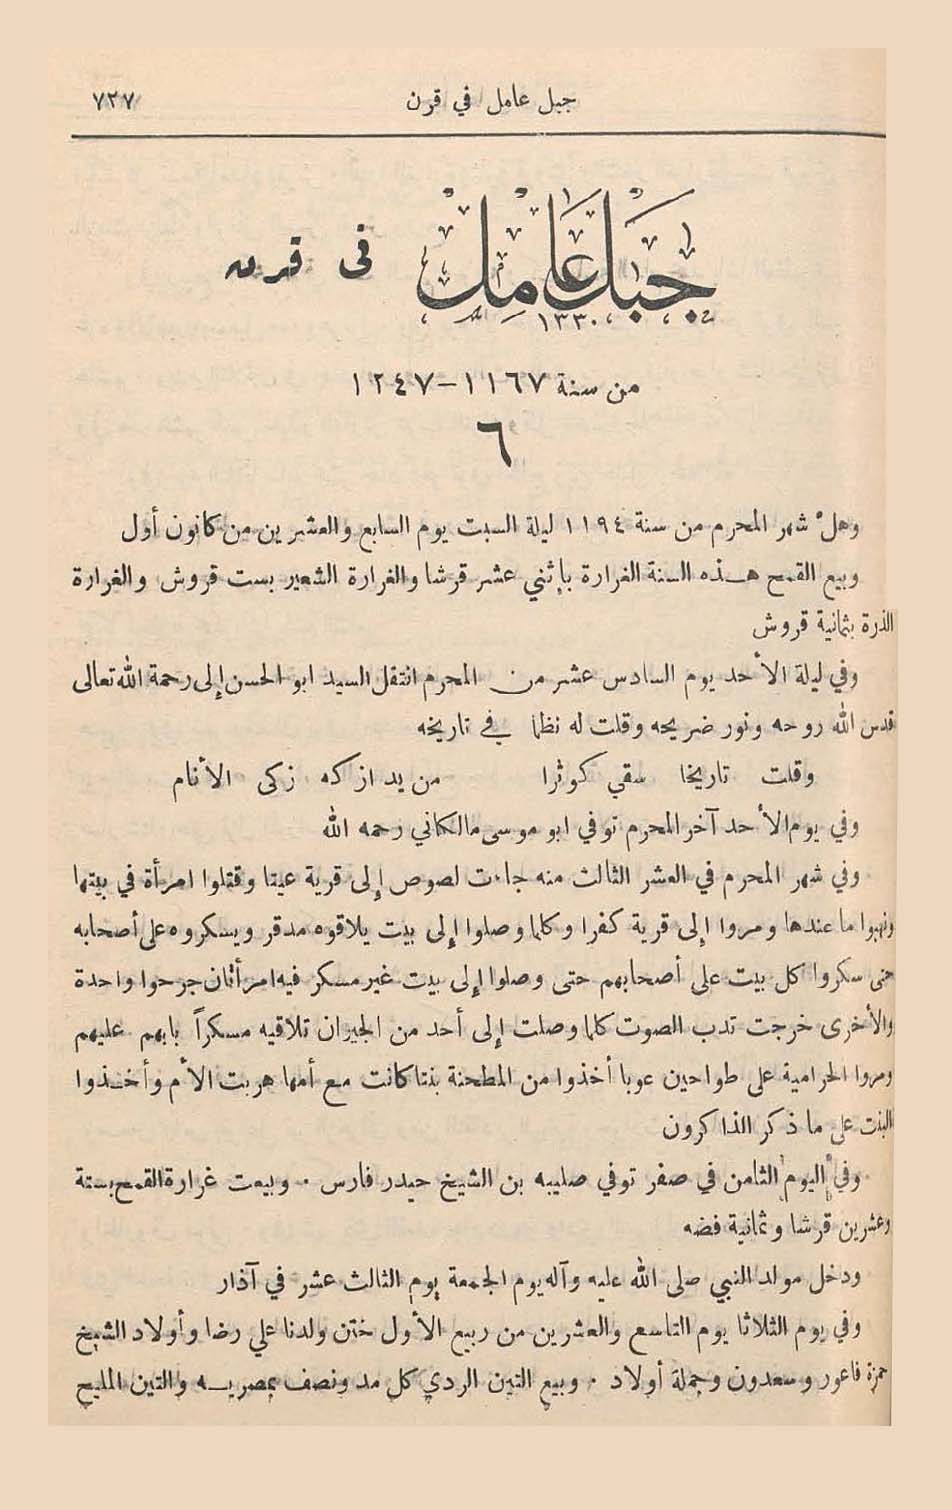 جبل عامل في قرن ٧٢٧
جَبَل عَامِل في قرن
١٣٣٠
من سنة ١١٦٧-١٢٤٧
٦
وهلّ شهر المحرم من سنة ١١٩٤ ليلة السبت يوم السابع والعشرين من كانون أول
وبيع القمح هذه السنة الغرارة بإثني عشر قرشا والغرارة الشعير بست قروش والغرارة
الذرة بثمانية قروش
وفي ليلة الأحد يوم السادس عشر من المحرم انتقل السيد ابو الحسن إلى رحمة الله تعالى
قدس الله روحه ونور ضريحه وقلت له نظما في تاريخه
وقلت تاريخا سقي كوثرا من يد ازكه زكى الأنام
وفي يوم الأحد آخر المحرم توفي ابو موسى مالكاني رحمه الله
وفي شهر المحرم في العشر الثالث منه جاءت لصوص إلى قرية عيتا وقتلوا امرأة في بيتها
ونهبوا ما عندها ومروا إلى قرية كفرا وكلما وصلوا إلى بيت يلاقوه مدقر ويسكروه على أصحابه
حتى سكروا كل بيت على أصحابهم حتى وصلوا إلى بيت غير مسكر فيه امرأتان جرحوا واحدة
والأخرى خرجت تدب الصوت كلما وصلت إلى أحد من الجيران تلاقيه مسكراً بابهم عليهم
ومروا الحرامية على طواحين عوبا أخذوا من المطحنة بنتا كانت مع أمها هربت الأم وأخذوا
البنت على ما ذكر الذاكرون
وفي اليوم الثامن في صفر توفي صليبه بن الشيخ حيدر فارس . وبيعت غرارة القمح بستة
وعشرين قرشا وثمانية فضه
ودخل مولد النبي صلى الله عليه وآله يوم الجمعة يوم الثالث عشر في آذار
وفي يوم الثلاثا يوم التاسع والعشرين من ربيع الأول ختن ولدنا علي رضا وأولاد الشيخ
حمزة فاعور وسعدون وجملة أولاد . وبيع التين الردي كل مد ونصف بمصريه والتين المليح